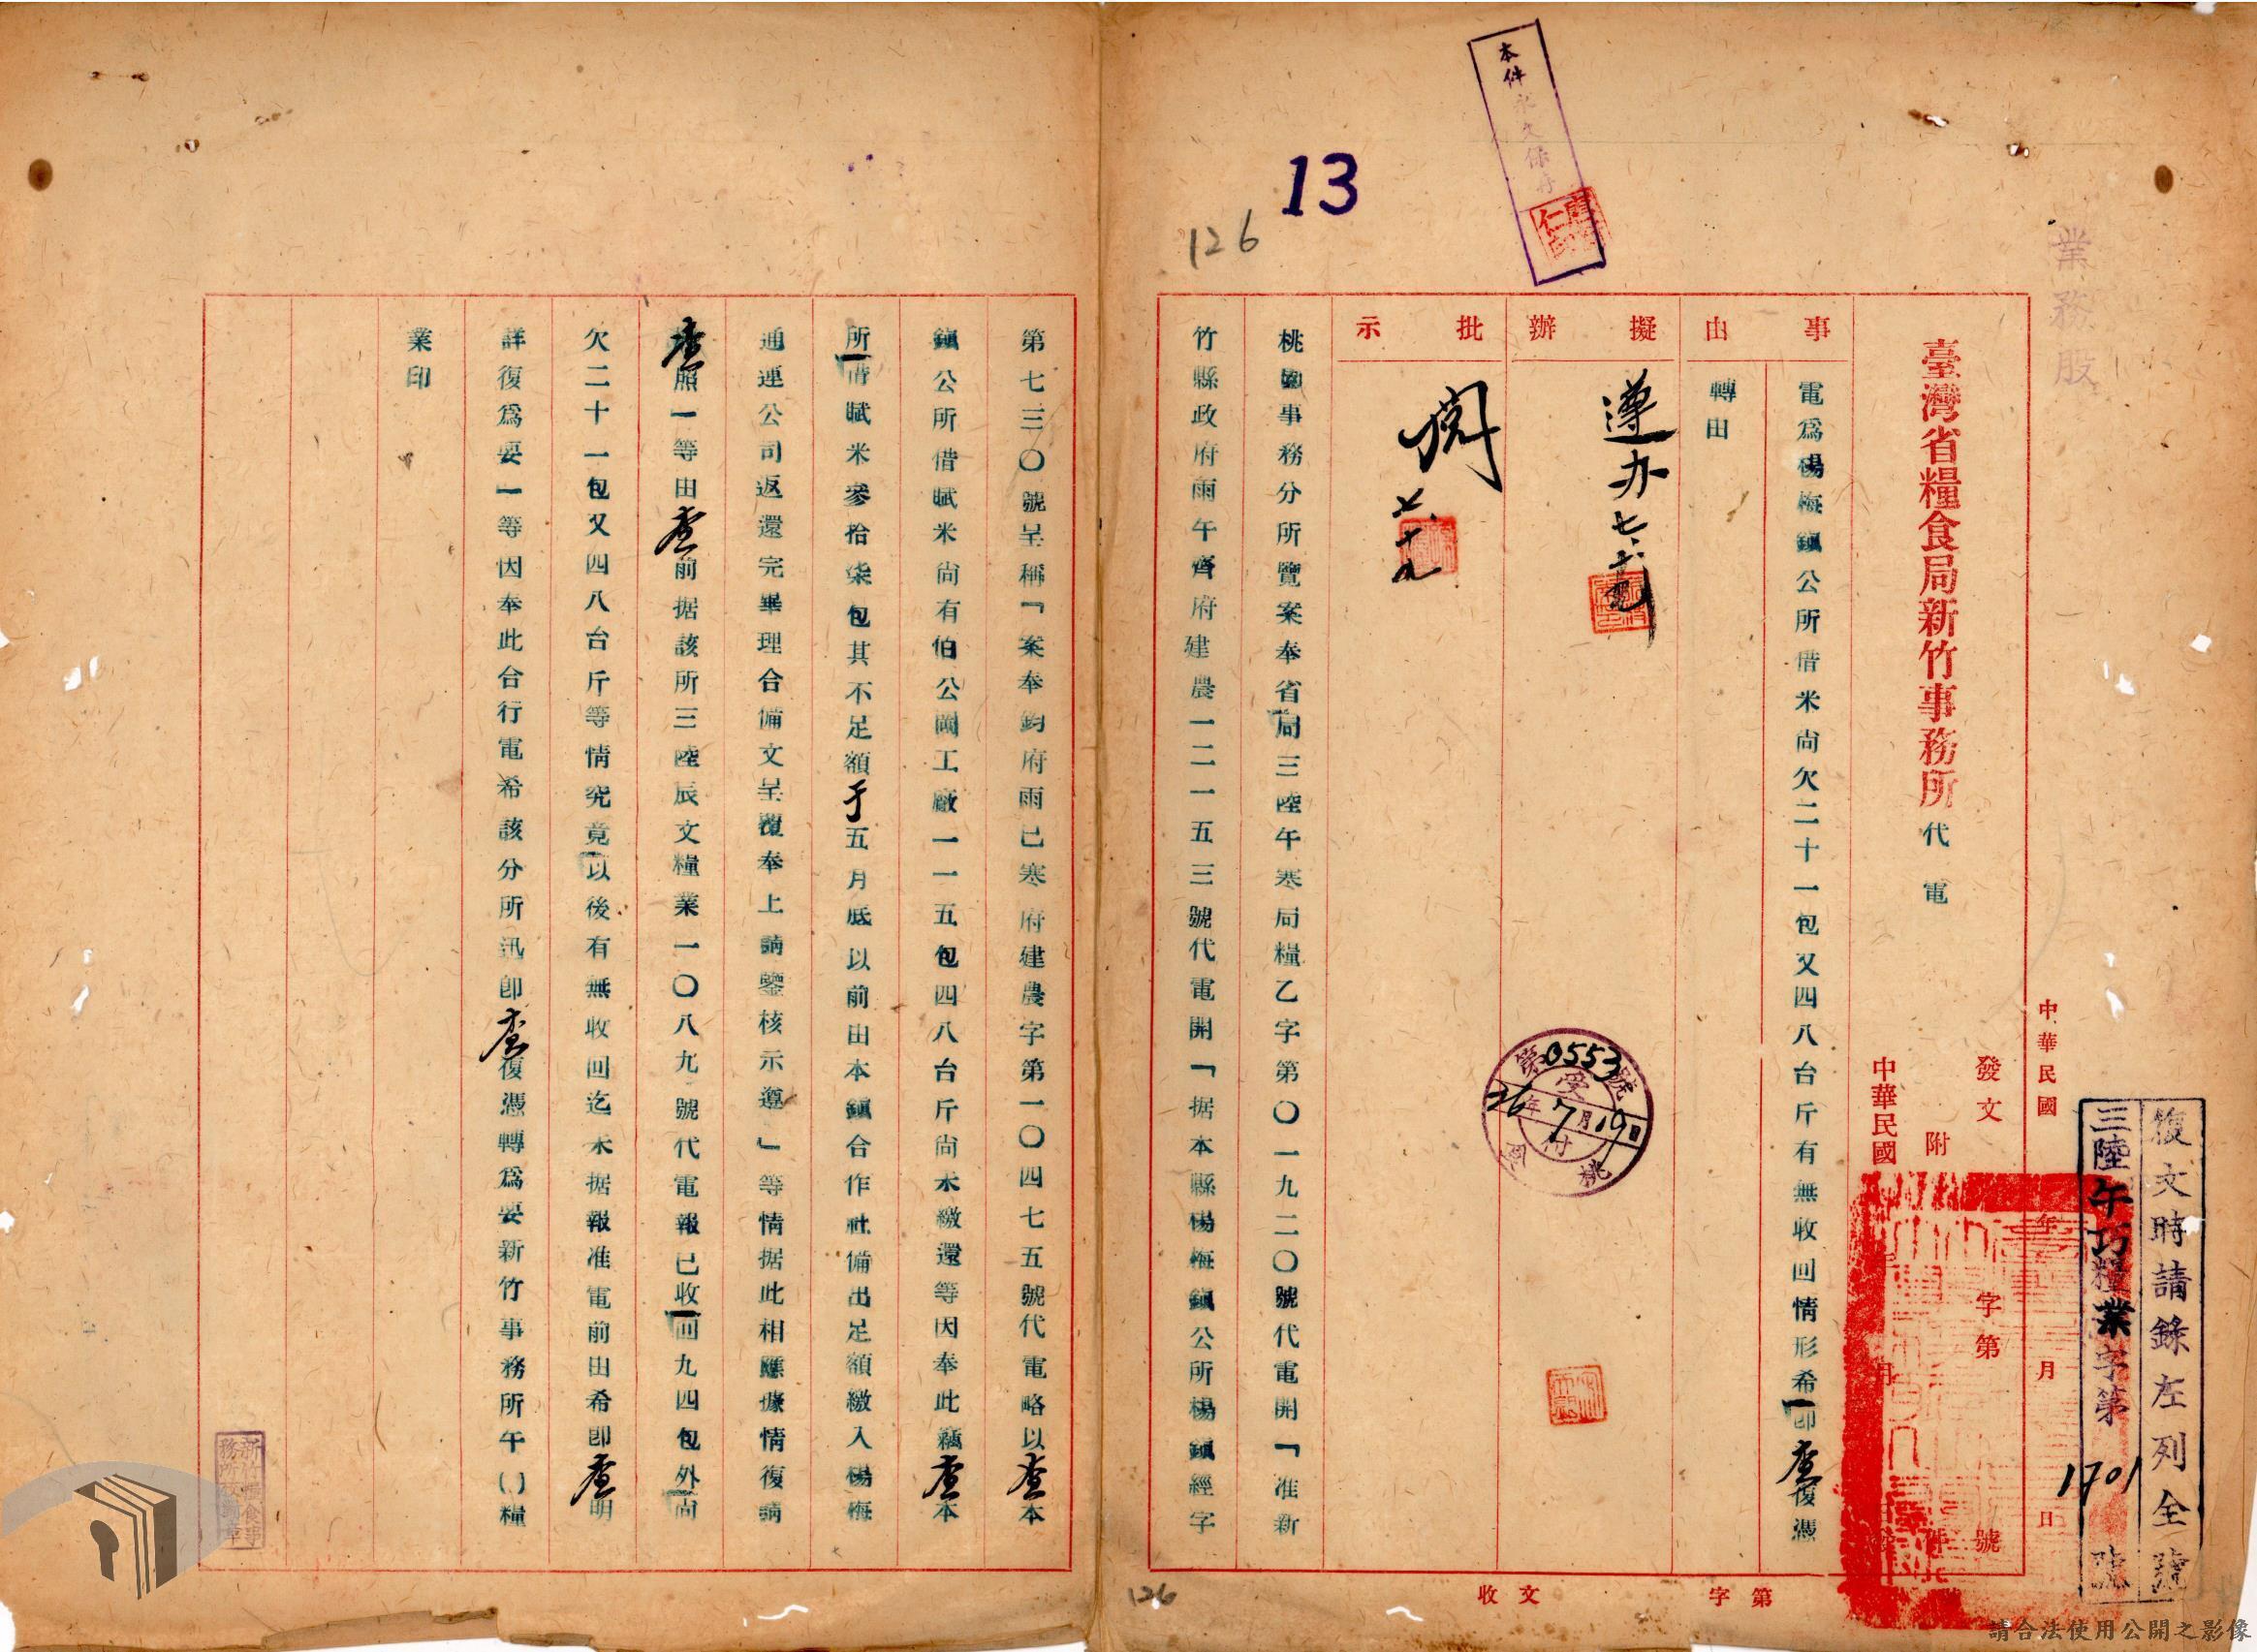 復文時請錄左列全號
三陸午巧糧業字第1701號
中華民國 年 月 日
發文 字第 號
附 件
中華民國 年 月
業務股
臺灣省糧食局新竹事務所 代電
事由
電爲楊梅鎭公所借米尚欠二十一包又四八台斤有無收回情形希卽查復憑
轉由
擬辦
遵办 七、
批示
閱 七、十九
本件永久保存
13
126
第0553號
受付
36年7月19日
桃園
桃園事務分所覽案奉省局三陸午寒局糧乙字第〇一九二〇號代電開「准新
竹縣政府雨午齊府建農一二一五三號代電開「据本縣楊梅鎭公所楊鎭經字
第七三〇號呈稱「案奉鈞府雨已寒府建農字第一〇四七五號代電略以查本
鎭公所借賦米尚有伯公岡工廠一一五包四八台斤尚未繳還等因奉此竊查本
所借賦米參拾柒包其不足額于五月底以前由本鎭合作社備出足額繳入楊梅
通運公司返還完畢理合備文呈覆奉上請鑒核示遵」等情据此相應據情復請
查照一等由查前据該所三陸辰文糧業一〇八九號代電報已收回九四包外尚
欠二十一包又四八台斤等情究竟以後有無收回迄未据報准電前由希卽查明
詳復爲要一等因奉此合行電希該分所迅卽查復憑轉爲要新竹事務所午()糧
業印
收文 字第
126
請合法使用公開之影像